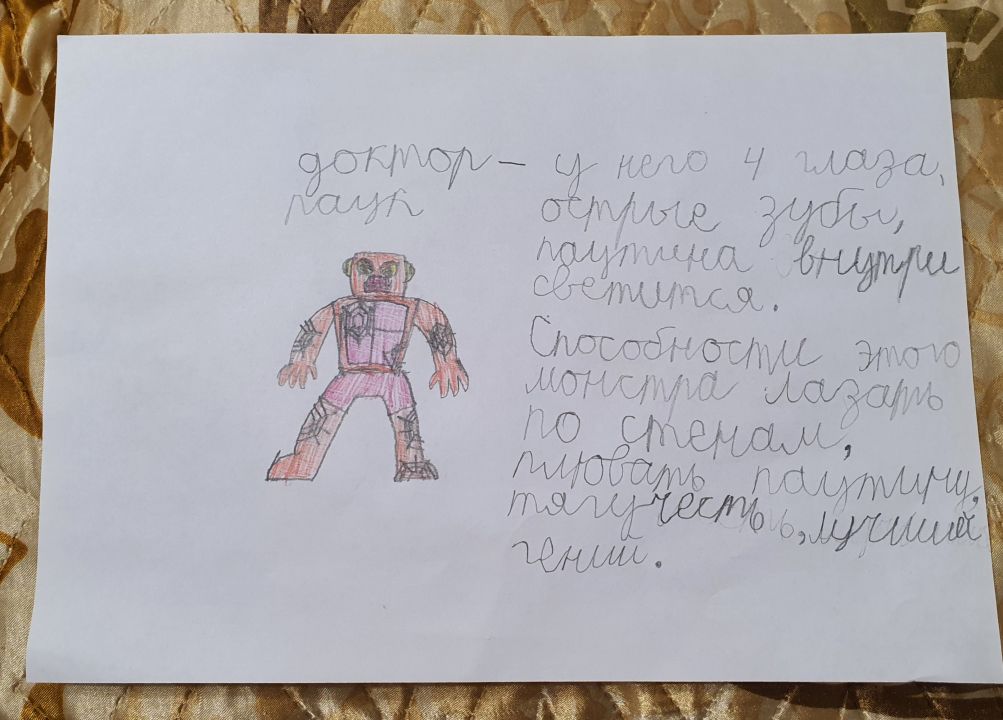 доктор – у него 4 глаза,
паук острые зубы,
паутина внутри
светится.
Способности этого
монстра лазать
по стенам,
плювать паутину,
тягучесть, лучший
гений.